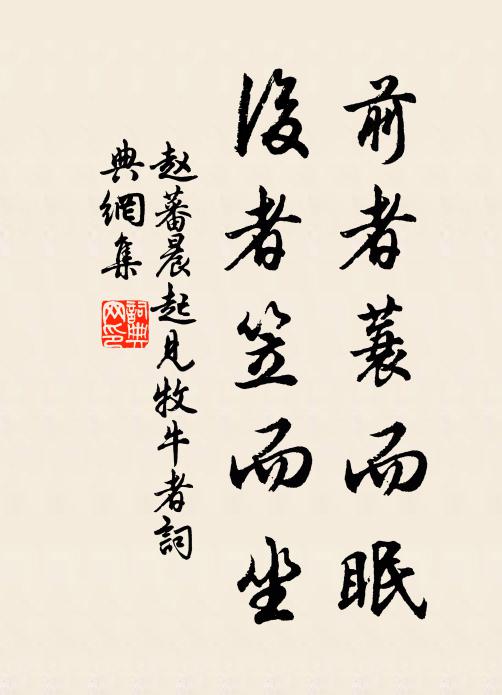 前者蓑而眠
後者笠而坐
赵蕃晨起见牧牛者詞
典網集
詞典
网印